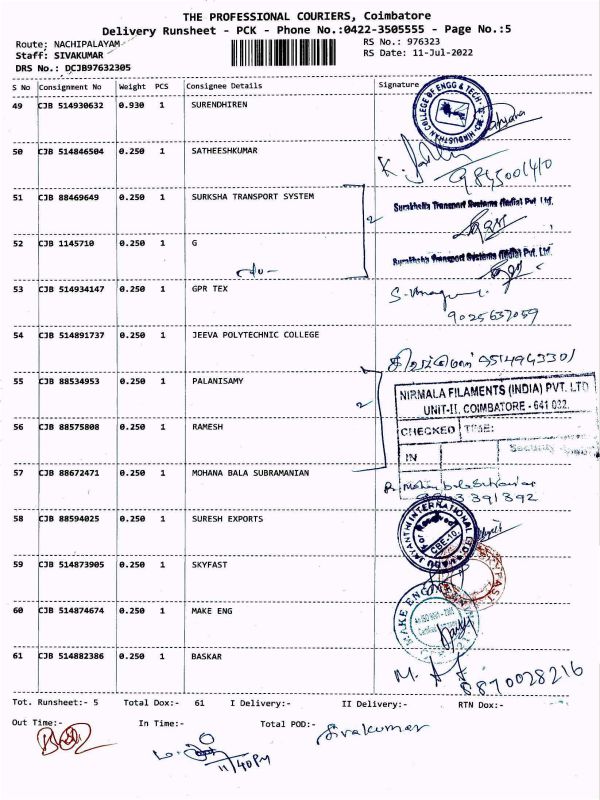 THE PROFESSIONAL COURIERS, Coimbatore
Delivery Runsheet - PCK - Phone No.:0422-3505555 - Page No.:5
Route: NACHIPALAYAM
RS No.: 976323
Staff: SIVAKUMAR
RS Date: 11-Jul-2022
DRS No.: DCJB97632305
S No Consignment No Weight PCS Consignee Details Signature
49 CJB 514930632 0.930 1 SURENDHIREN
HINDUSTHAN COLLEGE OF ENGG & TECH
50 CJB 514846504 0.250 1 SATHEESHKUMAR
9845001410
51 CJB 88469649 0.250 1 SURKSHA TRANSPORT SYSTEM
Surakhsha Transport Systems (India) Pvt. Ltd.
2
52 CJB 1145710 0.250 1 G
Surakhsha Transport Systems (India) Pvt. Ltd.
53 CJB 514934147 0.250 1 GPR TEX
9025637059
54 CJB 514891737 0.250 1 JEEVA POLYTECHNIC COLLEGE
9514943301
55 CJB 88534953 0.250 1 PALANISAMY
NIRMALA FILAMENTS (INDIA) PVT. LTD
UNIT-II, COIMBATORE - 641 032.
2
56 CJB 88575808 0.250 1 RAMESH
CHECKED TIME:
IN
Security
57 CJB 88672471 0.250 1 MOHANA BALA SUBRAMANIAN
58 CJB 88594025 0.250 1 SURESH EXPORTS
JAYANTHI INTERNATIONAL
For Received
CBE-10
59 CJB 514873905 0.250 1 SKYFAST
60 CJB 514874674 0.250 1 MAKE ENG
MAKE ENG
61 CJB 514882386 0.250 1 BASKAR
8870028216
Tot. Runsheet:- 5 Total Dox:- 61 I Delivery:- II Delivery:- RTN Dox:-
Out Time:- In Time:- Total POD:- Sivakumar
11/40PM